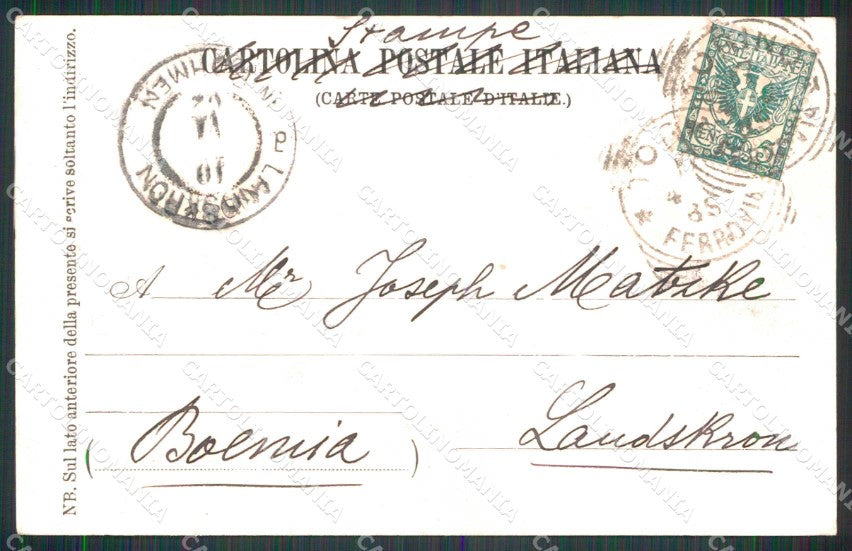 Stampe
CARTOLINA POSTALE ITALIANA
(CARTE POSTALE D'ITALIE.)
LANDSKRON
FERROVIA
POSTE ITALIANE
A Mr Joseph Matzke
Landskron
(Boemia)
NB. Sul lato anteriore della presente si scrive soltanto l'indirizzo.
CARTOLINOMANIA